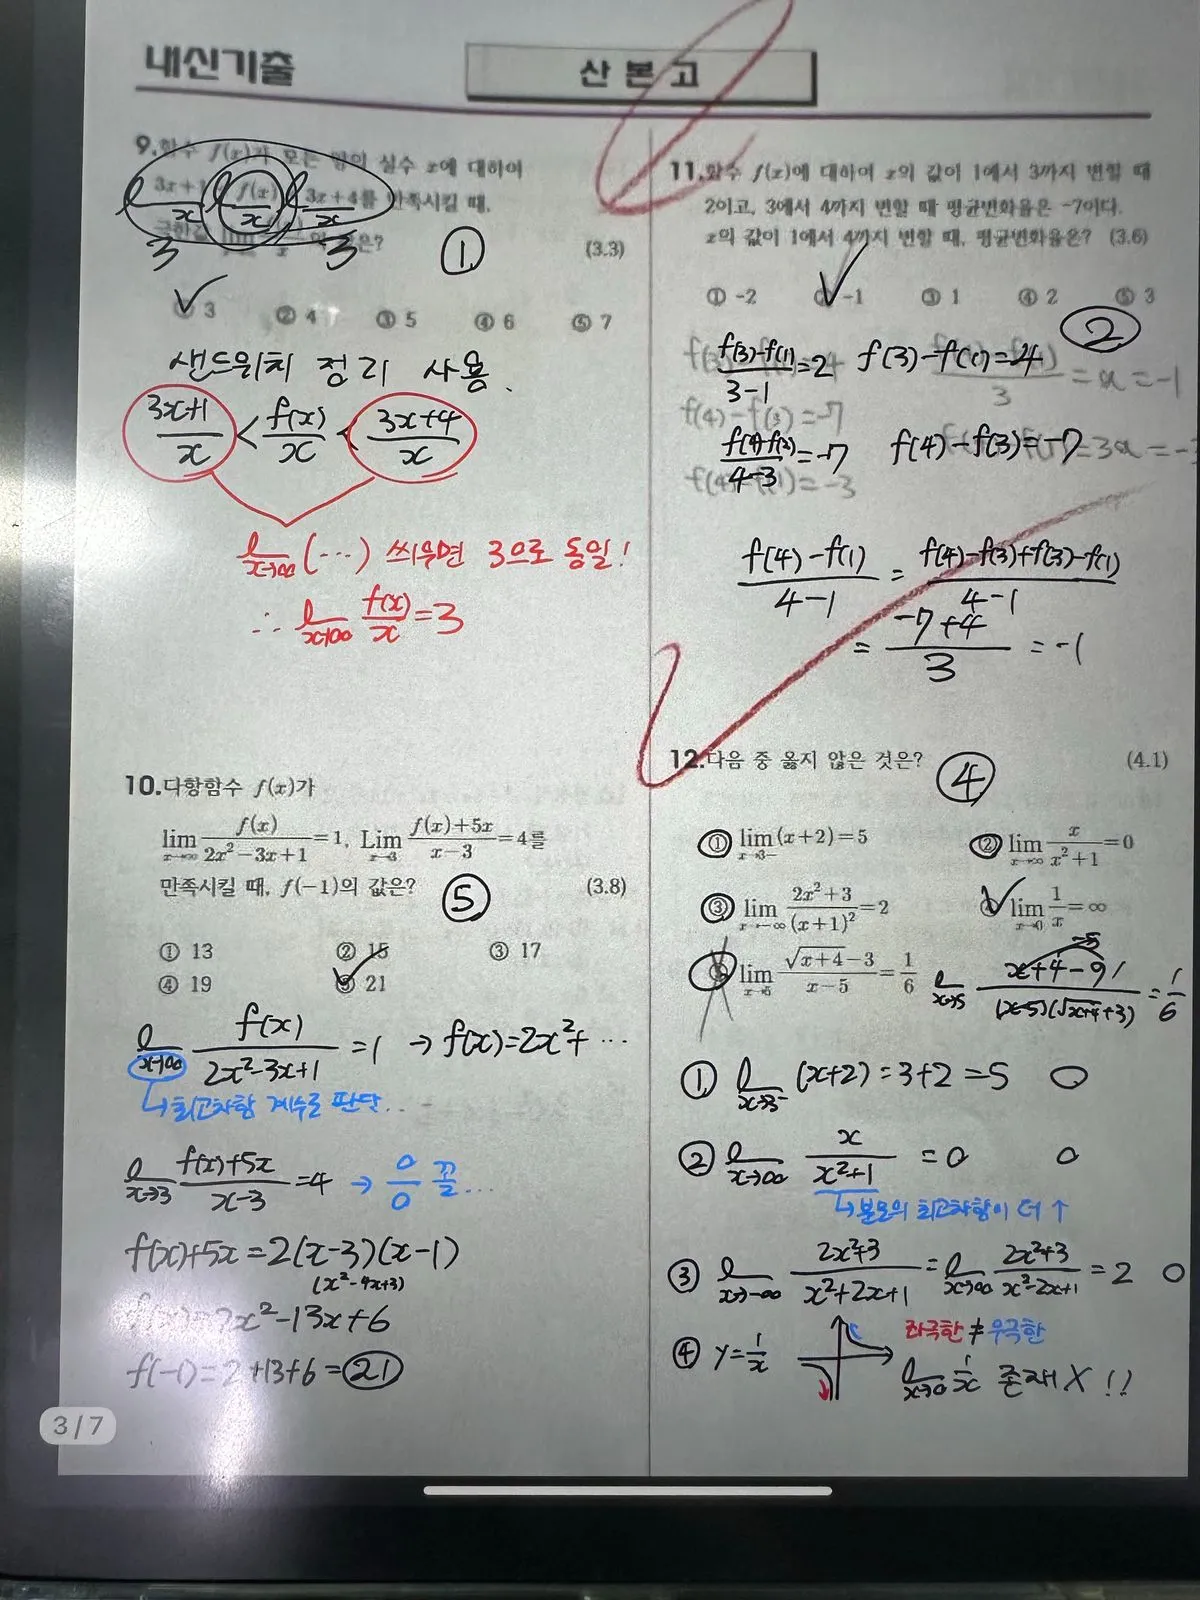 내신기출
산본고
9. 함수 f(x)가 모든 양의 실수 x에 대하여
3x+1 f(x) 3x+4를 만족시킬 때,
x x x
극한값 은?
3 3 ① (3.3)
① 3 ② 4 ③ 5 ④ 6 ⑤ 7
샌드위치 정리 사용.
(3x+1)/x < f(x)/x < (3x+4)/x
lim x→∞ (…) 씌우면 3으로 동일!
∴ lim x→∞ f(x)/x = 3
10. 다항함수 f(x)가
lim x→∞ f(x)/(2x²-3x+1) = 1, Lim x→3 (f(x)+5x)/(x-3) = 4를
만족시킬 때, f(-1)의 값은? ⑤ (3.8)
① 13 ② 15 ③ 17
④ 19 ⑤ 21
lim x→∞ f(x)/(2x²-3x+1) = 1 → f(x)=2x²+ …
↳ 최고차항 계수로 판단…
lim x→3 (f(x)+5x)/(x-3) = 4 → 0/0 꼴…
f(x)+5x=2(x-3)(x-1)
(x²-4x+3)
f(x)=2x²-13x+6
f(-1)=2+13+6=21
11. 함수 f(x)에 대하여 x의 값이 1에서 3까지 변할 때
2이고, 3에서 4까지 변할 때 평균변화율은 -7이다.
x의 값이 1에서 4까지 변할 때, 평균변화율은? (3.6)
① -2 ② -1 ③ 1 ④ 2 ⑤ 3
②
(f(3)-f(1))/(3-1)=2 f(3)-f(1)=4
3 = a = -1
f(4)-f(3)=-7
(f(4)-f(3))/(4-3)=-7 f(4)-f(3)=-7
=3a=-3
f(4)-f(1)=-3
(f(4)-f(1))/(4-1) = (f(4)-f(3)+f(3)-f(1))/(4-1)
= (-7+4)/3 = -1
12. 다음 중 옳지 않은 것은? ④ (4.1)
① lim x→3- (x+2)=5 ② lim x→∞ x/(x²+1)=0
③ lim x→-∞ (2x²+3)/(x+1)²=2 ④ lim x→0 1/x=∞
⑤ lim x→5 (√(x+4)-3)/(x-5)=1/6 lim x→5 (x+4-9)/((x-5)(√(x+4)+3))=1/6
x-5
① lim x→3- (x+2)=3+2=5 ○
② lim x→∞ x/(x²+1) = 0 ○
↳ 분모의 최고차항이 더 ↑
③ lim x→-∞ (2x²+3)/(x²+2x+1) = lim x→∞ (2x²+3)/(x²-2x+1) = 2 ○
④ y=1/x 좌극한 ≠ 우극한
lim x→0 1/x 존재 X !!
3/7